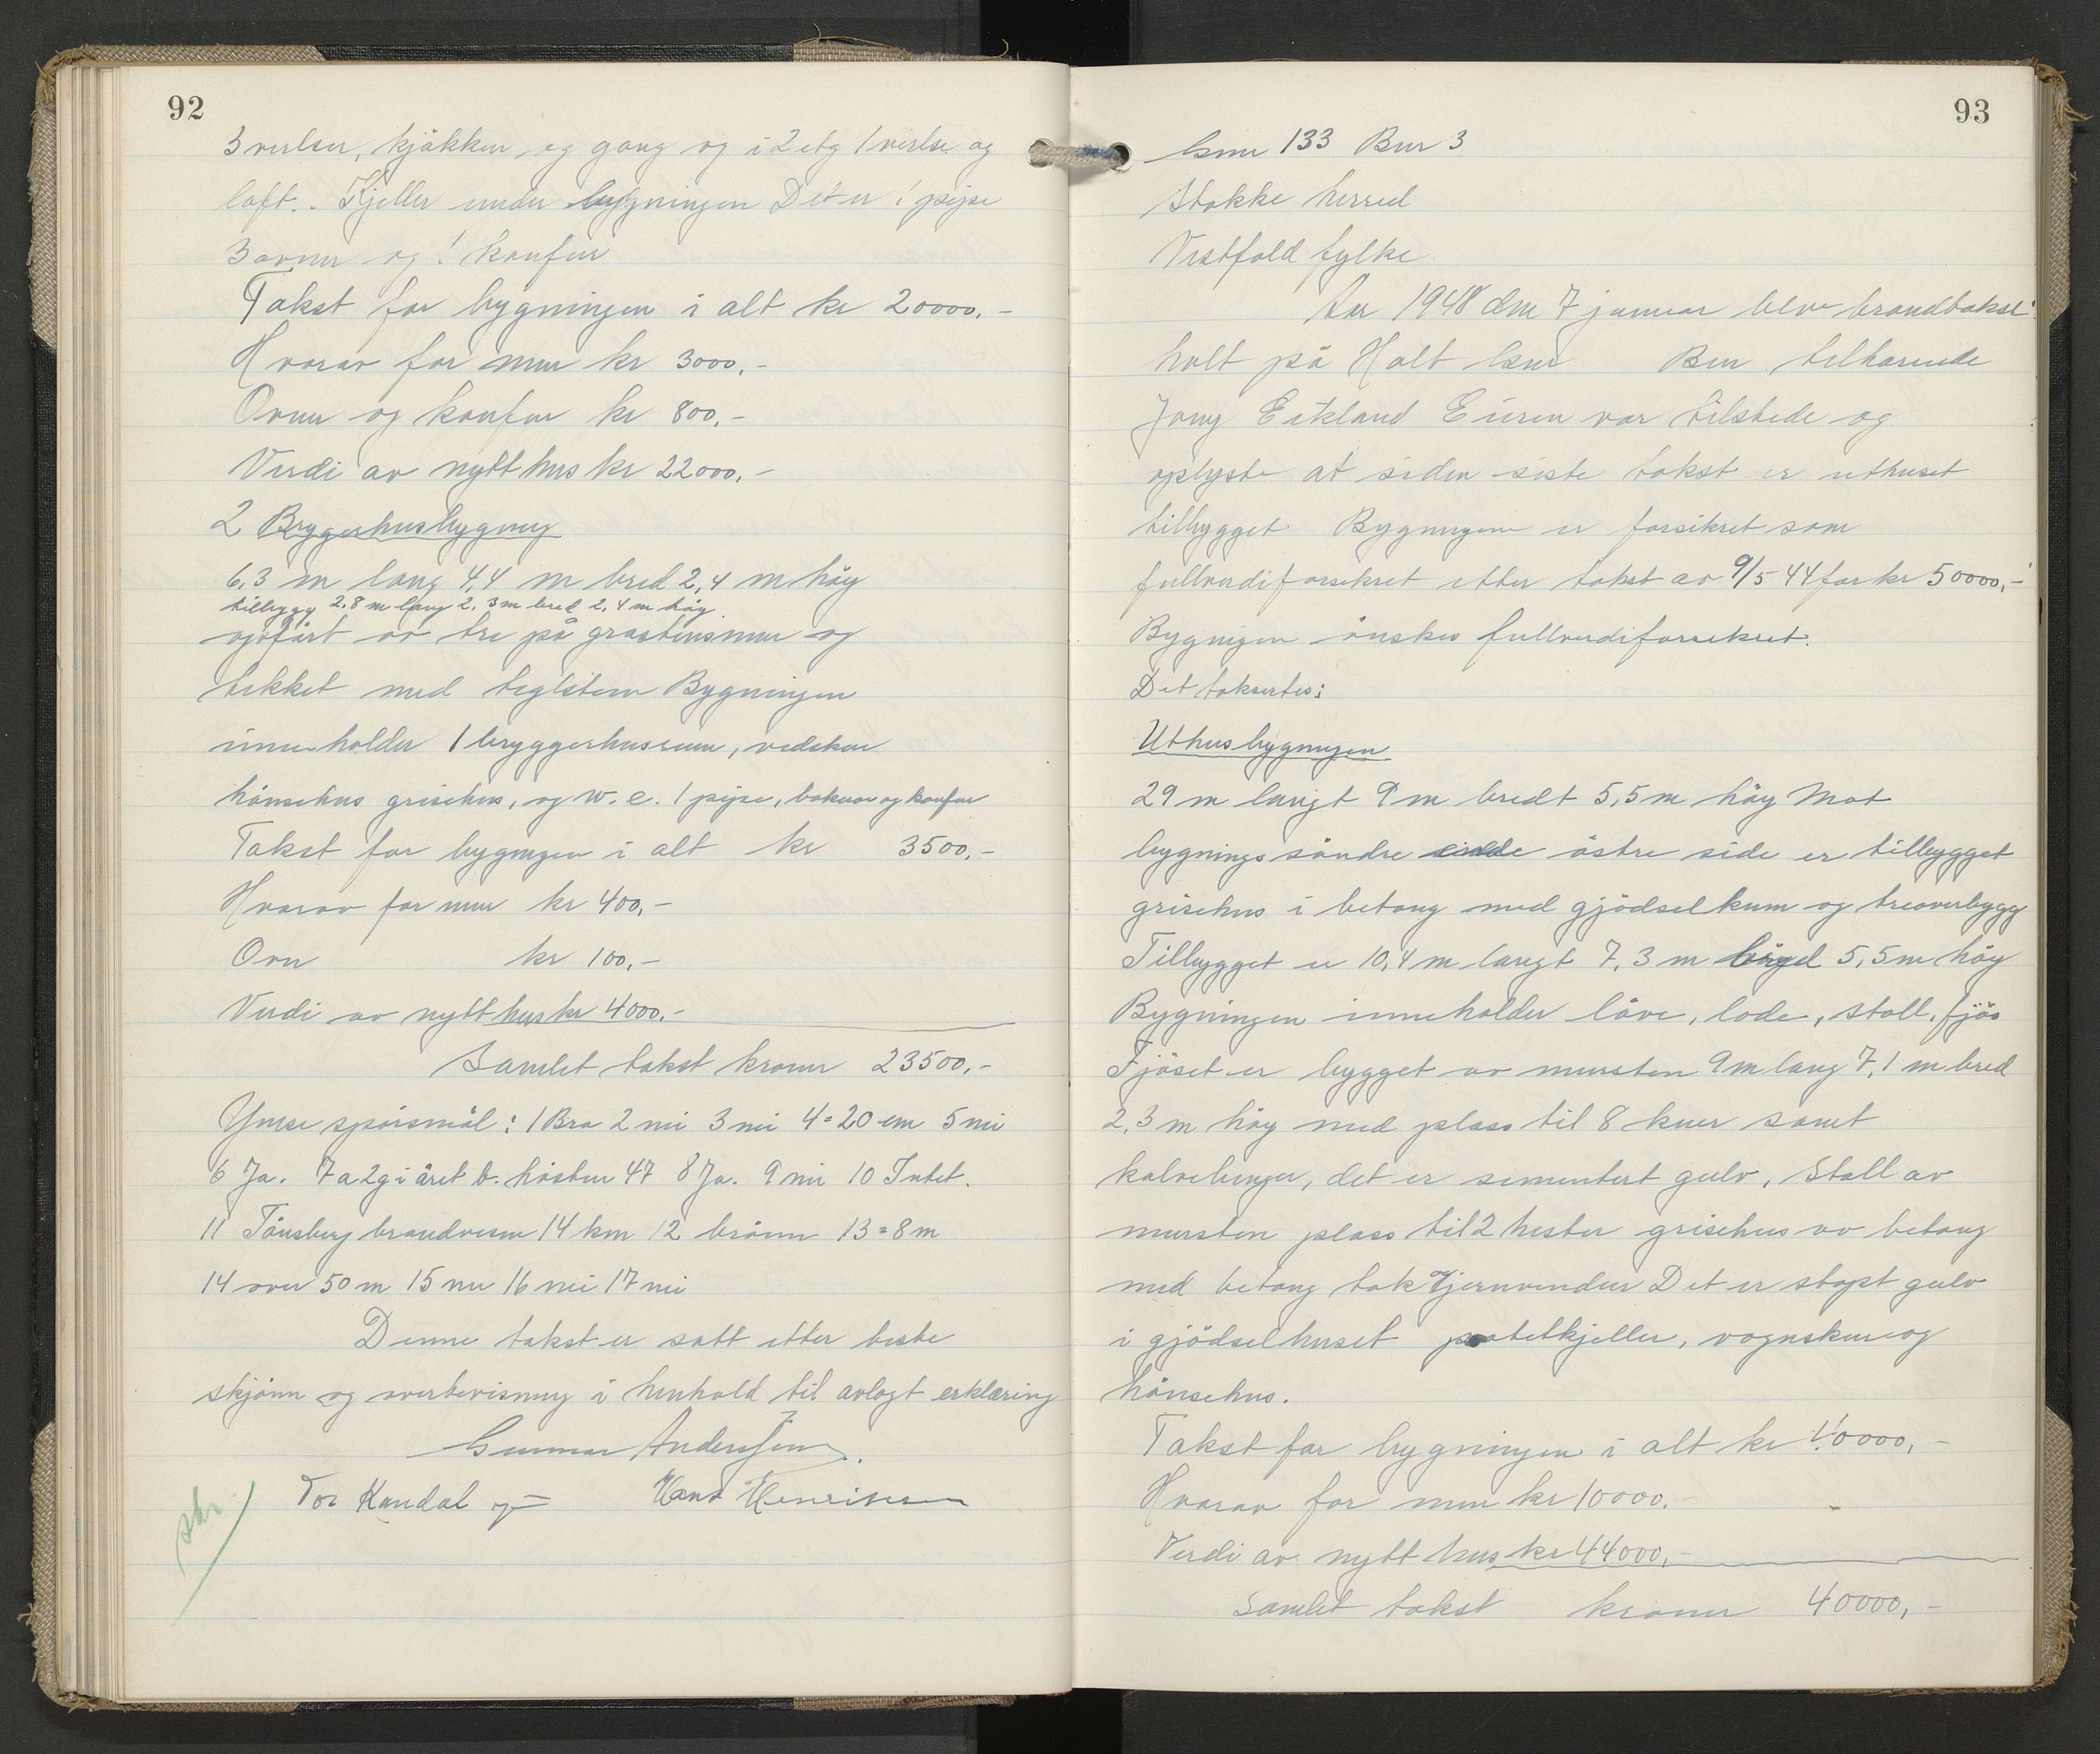 92
3 verlser, kjøkken og gang og i 2 etg 1 verlse og
loft. . Kjeller under bygningen Det er 1 pipe
3 ovner og 1 komfur
Takst for bygningen i alt kr 20000.-
Hvorav for mur kr 3000.-
Ovner og komfur kr 800.-
Verdi av nytt hus kr 22000.-
2 Bryggerhusbygning
6,3 m lang 4,4 m bred 2,4 m høy
tilbygg 2,8 m lang 2,3 m bred 2,4 m høy
opført av tre på gråstensmur og
tekket med teglsten Bygningen
inneholder 1 bryggerhusrum, vedskur
hönsehus grisehus, og w.c. 1 pipe, bakerov og komfur
Takst for bygningen i alt kr 3500,-
Hvorav for mur kr 400,-
Ovn kr 100,-
Verdi av nytt hus kr 4000.-
Samlet takst kroner 23500,-
Ymse spörsmål: 1 Bra 2 nei 3 nei 4 = 20 cm 5 nei
6 Ja. 7 a 2 g i året b. hösten 47 8 Ja. 9 nei 10 Intet.
11 Tönsberg brandvesen 14 km 12 brönn 13 = 8 m
14 over 50 m 15 nei 16 nei 17 nei
Denne takst er satt etter beste
skjönn og overbevisning i henhold til avlagt erklæring
Gunnar Anderssen
Tor Kandal Hans Henriksen
skr.
93
Gnr 133 Bnr 3
Stokke herred
Vestfold fylke
År 1948 den 7 januar blev brandtakst
holt på Holt Gnr Bnr tilhörende
Jony Eikland Eieren var tilstede og
oplyste at siden siste takst er uthuset
tilbygget Bygningen er forsikret som
fullverdiforsikret etter takst av 9/5 44 for kr 50000,-
Bygnigen önskes fullverdiforsikret.
Det taksertes:
Uthusbygningen
29 m langt 9 m bredt 5,5 m höy Mot
bygnings söndre östre side er tilbygget
grisehus i betong med gjödselkum og treoverbygg
Tilbygget er 10,4 m langt 7,3 m bred 5,5 m höy
Bygningen inneholder låve, lode, stall, fjös
Fjöset er bygget av mursten 9 m lang 7,1 m bred
2,3 m höy med plass til 8 kuer samt
kalvebinger, det er sementert gulv. Stall av
mursten plass til 2 hester grisehus av betong
med betong tak Hjernvinduer Det er stöpt gulv
i gjödselhuset potetkjeller, vognskur og
hönsehus.
Takst for bygningen i alt kr 40000,-
Hvorav for mur kr 10000.-
Verdi av nytt hus kr 44000,-
Samlet takst kroner 40000,-